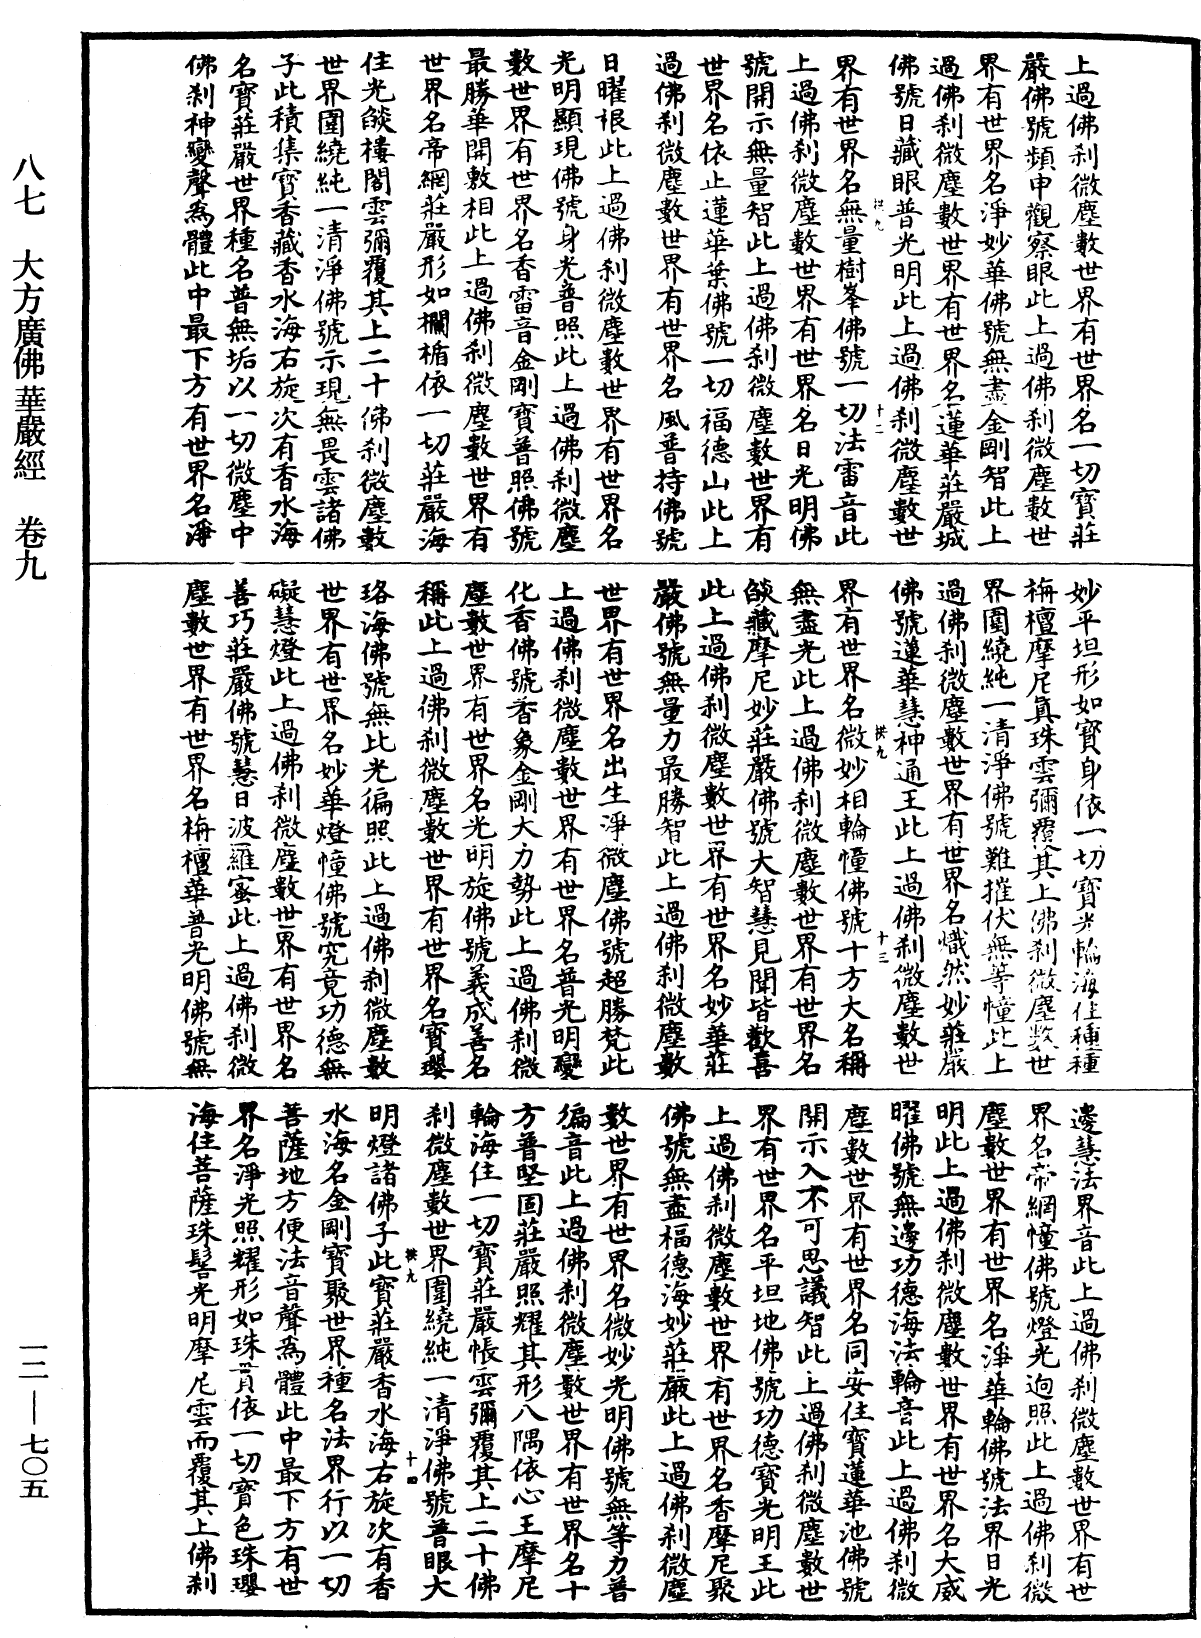 上過佛刹微塵數世界有世界名一切寶莊
嚴佛號頻申觀察眼此上過佛刹微塵數世
界有世界名淨妙華佛號無盡金剛智此上
過佛刹微塵數世界有世界名蓮華莊嚴城
佛號日藏眼普光明此上過佛刹微塵數世
界有世界名無量樹峯佛號一切法雷音此
上過佛刹微塵數世界有世界名日光明佛
號開示無量智此上過佛刹微塵數世界有
世界名依止蓮華葉佛號一切福德山此上
過佛刹微塵數世界有世界名風普持佛號
日曜根此上過佛刹微塵數世界有世界名
光明顯現佛號身光普照此上過佛刹微塵
數世界有世界名香雷音金剛寶普照佛號
最勝華開敷相此上過佛刹微塵數世界有
世界名帝網莊嚴形如欄楯依一切莊嚴海
住光燄樓閣雲彌覆其上二十佛刹微塵數
世界圍繞純一清淨佛號示現無畏雲諸佛
子此積集寶香藏香水海右旋次有香水海
名寶莊嚴世界種名普無垢以一切微塵中
佛刹神變聲為體此中最下方有世界名淨
妙平坦形如寶身依一切寶光輪海住種種
栴檀摩尼真珠雲彌覆其上佛刹微塵數世
界圍繞純一清淨佛號難摧伏無等幢此上
過佛刹微塵數世界有世界名熾然妙莊嚴
佛號蓮華慧神通王此上過佛刹微塵數世
界有世界名微妙相輪幢佛號十方大名稱
無盡光此上過佛刹微塵數世界有世界名
燄藏摩尼妙莊嚴佛號大智慧見聞皆歡喜
此上過佛刹微塵數世界有世界名妙華莊
嚴佛號無量力最勝智此上過佛刹微塵數
世界有世界名出生淨微塵佛號超勝梵此
上過佛刹微塵數世界有世界名普光明變
化香佛號香象金剛大力勢此上過佛刹微
塵數世界有世界名光明旋佛號義成善名
稱此上過佛刹微塵數世界有世界名寶瓔
珞海佛號無比光徧照此上過佛刹微塵數
世界有世界名妙華燈幢佛號究竟功德無
礙慧燈此上過佛刹微塵數世界有世界名
善巧莊嚴佛號慧日波羅蜜此上過佛刹微
塵數世界有世界名栴檀華普光明佛號無
邊慧法界音此上過佛刹微塵數世界有世
界名帝網幢佛號燈光迥照此上過佛刹微
塵數世界有世界名淨華輪佛號法界日光
明此上過佛刹微塵數世界有世界名大威
曜佛號無邊功德海法輪音此上過佛刹微
塵數世界有世界名同安住寶蓮華池佛號
開示入不可思議智此上過佛刹微塵數世
界有世界名平坦地佛號功德寶光明王此
上過佛刹微塵數世界有世界名香摩尼聚
佛號無盡福德海妙莊嚴此上過佛刹微塵
數世界有世界名微妙光明佛號無等力普
徧音此上過佛刹微塵數世界有世界名十
方普堅固莊嚴照耀其形八隅依心王摩尼
輪海住一切寶莊嚴帳雲彌覆其上二十佛
刹微塵數世界圍繞純一清淨佛號普眼大
明燈諸佛子此寶莊嚴香水海右旋次有香
水海名金剛寶聚世界種名法界行以一切
菩薩地方便法音聲為體此中最下方有世
界名淨光照耀形如珠貫依一切寶色珠瓔
海住菩薩珠髻光明摩尼雲而覆其上佛刹
拱九
十二
拱九
十三
拱九
十四
八七　大方廣佛華嚴經　卷九
一二—七〇五